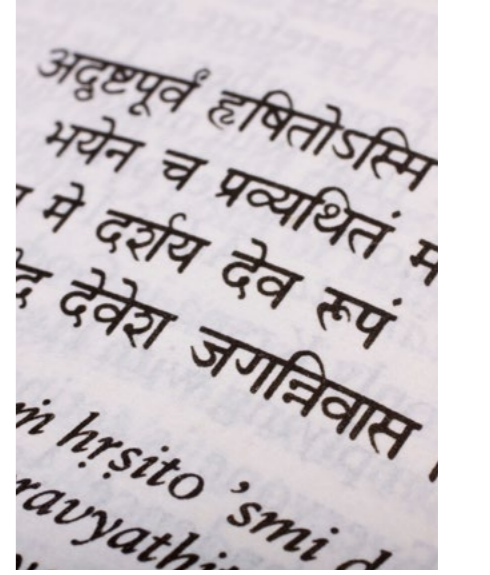 अदृष्टपूर्वं हृषितोऽस्मि
भयेन च प्रव्यथितं म
मे दर्शय देव रूपं
देवेश जगन्निवास ।
ṁ hṛṣito ’smi d
ravyathit